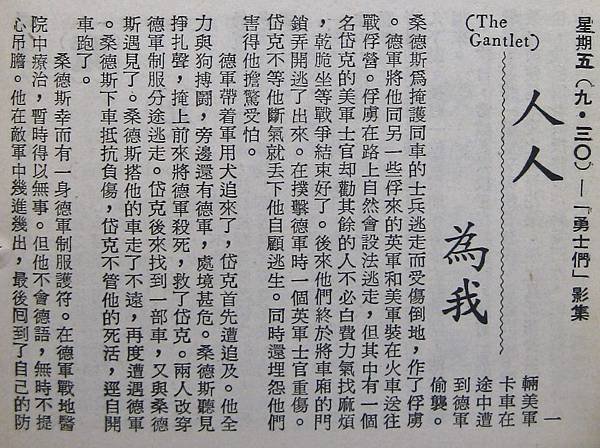 星期五(九・三○)—「勇士們」影集
人人為我
(The
Gantlet)
一
輛美軍
卡車在
途中遭
到德軍
偷襲。
桑德斯爲掩護同車的士兵逃走而受傷倒地,作了俘虜
。德軍將他同另一些俘來的英軍和美軍裝在火車送往
戰俘營。俘虜在路上自然會設法逃走,但其中有一個
名岱克的美軍士官却勸其餘的人不必白費力氣找麻煩
,乾脆坐等戰爭結束好了。後來他們終於將車廂的門
鎖弄開逃了出來。在撲擊德軍時一個英軍士官重傷。
岱克不等他斷氣就丟下他自顧逃生。同時還埋怨他們
害得他擔驚受怕。
德軍帶着軍用犬追來了,岱克首先遭追及。他全
力與狗搏鬪,旁邊還有德軍,處境甚危。桑德斯聽見
掙扎聲,掩上前來將德軍殺死,救了岱克。兩人改穿
德軍制服分途逃走。岱克後來找到一部車,又與桑德
斯遇見了。桑德斯搭他的車走了不遠,再度遭遇德軍
。桑德斯下車抵抗負傷,岱克不管他的死活,逕自開
車跑了。
桑德斯幸而有一身德軍制服護符。在德軍戰地醫
院中療治,暫時得以無事。但他不會德語,無時不提
心吊膽。他在敵軍中幾進幾出,最後回到了自己的防